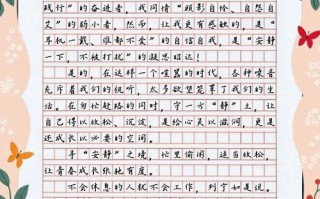 践行”的奋进者,我同情“顾影自怜、自怨自
艾”的弱小者,然而,让我更有感触的,是“
耳机一戴、谁都不爱”的自信自我,是“安静
一下,不被打扰”的凝思昭达!
是的,在这样一个喧嚣的时代,各种噪音
充斥着我们的视听,太多欲望笼罩了我们的生
活。在匆忙赶路的同时,守一方“静”土,让
自己得以放松、沉淀,是给心灵以滋润,更是
还成长以必要的空间。
寻“安静”之境,忙里偷闲,适当放松,
让青春成长张弛有度。
不会休息的人就不会工作,列宁如是说。